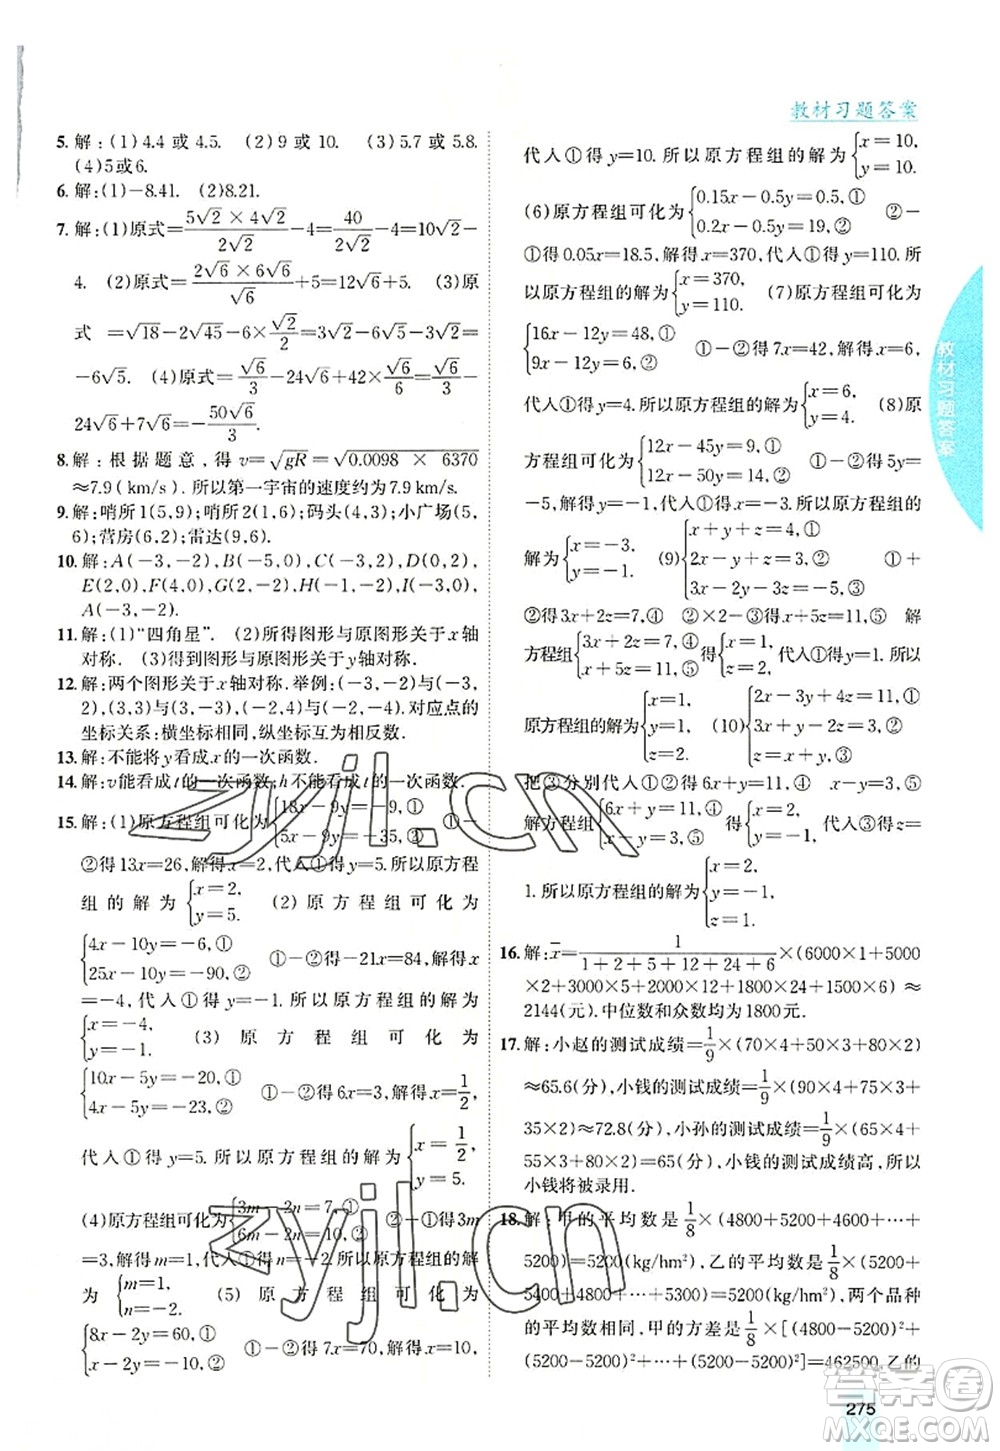 教材习题答案
5. 解:(1)4.4 或 4.5. (2)3 或 4. (3)5.7 或 5.8.
(4)5或6.
6. 解:(1)-8.41. (2)8.21.
7. 解:(1)原式=5√2×4√2/2√2-4=40/2√2-4=10√2-
4. (2)原式=2√6×6√6/√6+5=12√6+5. (3)原
式=√18-2√45-6×√2/2=3√2-6√5-3√2=
-6√5. (4)原式=√6/3-24√6+42×√6/6=√6/3-
24√6+7√6=-50√6/3.
8. 解:根据题意,得v=√gR=√0.0098 × 6370
≈7.9(km/s).所以第一宇宙的速度约为7.9 km/s.
9. 解:哨所1(5,9);哨所2(1,6);码头(3,4);小广场(5,
6);营房(6,2);雷达(9,6).
10. 解:A(-3,-2),B(-5,0),C(-3,2),D(0,2),
E(2,0),F(4,0),G(2,-2),H(-1,-2),I(-3,0),
A(-3,-2).
11. 解:(1)“四角星”. (2)所得图形与原图形关于x轴
对称. (3)得到图形与原图形关于y轴对称.
12. 解:两个图形关于x轴对称.举例:(-3,2),(-3,-
2),(3,3)(3,-3),(-2,4)(-2,-4).对应点的
坐标关系:横坐标相同,纵坐标互为相反数.
13. 解:不能将y看成x的一次函数.
14. 解:v能看成t的一次函数;h不能看成t的一次函数.
15. 解:(1)原方程组可化为{18x-9y=-9,① 5x-9y=-35,② ①-
②得13x=26,解得x=2,代入①得y=5.所以原方程
组的解为{x=2, y=5. (2)原方程组可化为
{4x-10y=-6,① 25x-10y=-90,② ①-②得-21x=84,解得x
=-4,代入①得y=-1.所以原方程组的解为
{x=-4, y=-1. (3)原方程组可化为
{10x-5y=-20,① 4x-5y=-23,② ①-②得6x=3,解得x=1/2,
代入①得y=5.所以原方程组的解为{x=1/2, y=5.
(4)原方程组可化为{3m-2n=7,① 6m+2n=2,② ②+①得9m
=9,解得m=1,代入①得n=-2.所以原方程组的解
为{m=1, n=-2. (5)原方程组可化为
{8x-2y=60,① 9x-2y=70,② ②-①得x=10,解得x=10,
代入①得y=10.所以原方程组的解为{x=10, y=10.
(6)原方程组可化为{0.15x-0.5y=0.5,① 0.2x-0.5y=19,② ②-
①得0.05x=18.5,解得x=370,代入①得y=110.
所以原方程组的解为{x=370, y=110. (7)原方程组可化为
{16x-12y=48,① 9x-12y=6.② ①-②得7x=42,解得x=6,
代入①得y=4.所以原方程组的解为{x=6, y=4. (8)原
方程组可化为{12x-45y=9,① 12x-40y=4,② ①-②得-5y=
-5,解得y=1,代入①得x=-3.所以原方程组的
解为{x=-3. y=-1. (9){x+y+z=3,① 2x-y+z=2,② x-2y-3z=-5,③ ①+
②得3x+2z=7,④ ②×2-③得x+5z=11,⑤ 解
方程组{3x+2z=7,④ x+5z=11,⑤得{x=1, z=2,代入①得y=1,所以
原方程组的解为{x=1, y=1, z=2. (10){2x-3y+4z=11,① x-2y+z=5,② z=x+y,③
把③分别代入①②得 6x+y=11,④ x-y=3,⑤
解方程组{6x+y=11,④ x-y=3,⑤ 得{x=2, y=-1,代入③得z=
1.所以原方程组的解为{x=2, y=-1, z=1.
16. 解:x̄=1/1+2+5+12+24+6×(6000×1+5000
×2+3000×5+2000×12+1800×24+1500×6)≈
2144(元).中位数和众数均为1800元.
17. 解:小赵的测试成绩=1/9×(70×4+50×3+80×2)
≈65.6(分),小钱的测试成绩=1/9×(90×4+75×3+
35×2)≈72.8(分),小孙的测试成绩=1/9×(65×4+
55×3+80×2)=65(分);小钱的测试成绩高,所以
小钱将被录用.
18. 解:甲的平均数是1/8×(4800+5200+4600+…+
5200)=5200(kg/hm²),乙的平均数是1/8×(5200+
5200+…+5800)=5200(kg/hm²),两个品种
的平均数相同,甲的方差是1/8×[(4800-5200)²+
(5200-5200)²+…+(5200-5200)²]=462500,乙的
教材习题答案
275
zyjl.cn
zyjl.cn
答案圈
MXQE.COM